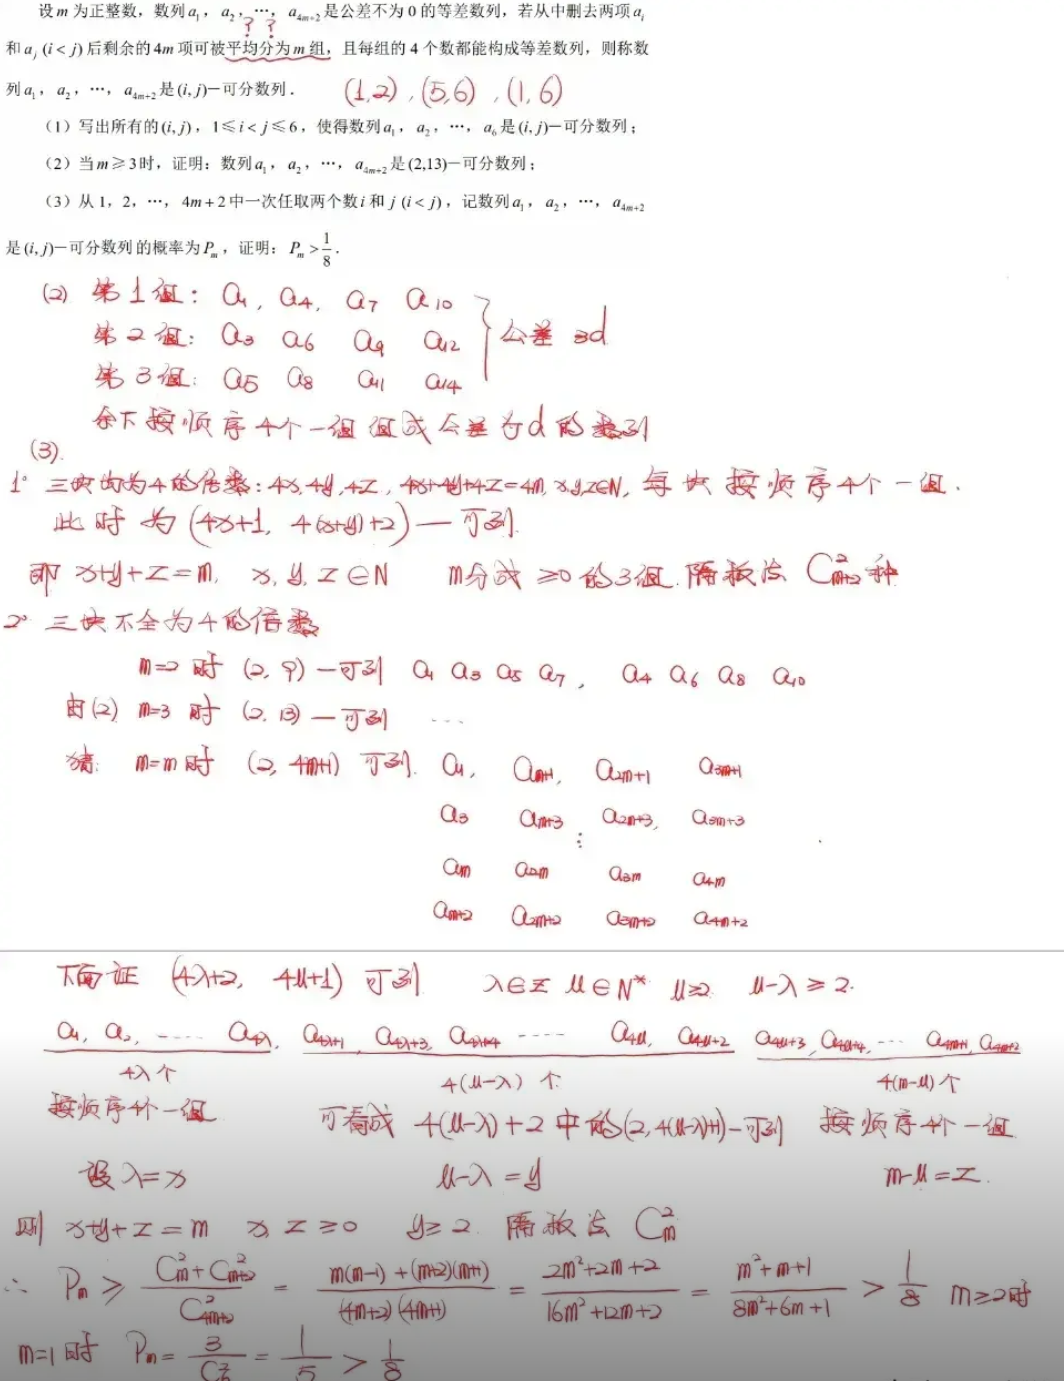 设m为正整数，数列a₁，a₂，…，a₄ₘ₊₂是公差不为0的等差数列，若从中删去两项aᵢ
? ?
和aⱼ(i<j)后剩余的4m项可被平均分为m组，且每组的4个数都能构成等差数列，则称数
列a₁，a₂，…，a₄ₘ₊₂是(i,j)一可分数列． (1,2),(5,6),(1,6)
（1）写出所有的(i,j)，1≤i<j≤6，使得数列a₁，a₂，…，a₆是(i,j)一可分数列；
（2）当m≥3时，证明：数列a₁，a₂，…，a₄ₘ₊₂是(2,13)一可分数列；
（3）从1，2，…，4m+2中一次任取两个数i和j(i<j)，记数列a₁，a₂，…，a₄ₘ₊₂
是(i,j)一可分数列的概率为Pₘ，证明：Pₘ>1/8．
(2) 第1组: a₁, a₄, a₇ a₁₀
第2组: a₃ a₆ a₉ a₁₂ } 公差3d
第3组: a₅ a₈ a₁₁ a₁₄
余下按顺序4个一组组成公差为d的数列
(3).
1° 三块均为4的倍数: 4x,4y,4z, 4x+4y+4z=4m, x,y,z∈N, 每块按顺序4个一组.
此时为(4x+1, 4(x+y)+2)—可列.
即 x+y+z=m, x,y,z∈N m分成≥0的3组.隔板法 C²ₘ₊₂种
2° 三块不全为4的倍数
m=2时 (2,9)—可列 a₁ a₃ a₅ a₇, a₄ a₆ a₈ a₁₀
由(2) m=3时 (2.13)—可列 ...
猜: m=m时 (2, 4m+1) 可列. a₁, aₘ₊₁, a₂ₘ₊₁ a₃ₘ₊₁
a₃ aₘ₊₃ a₂ₘ₊₃, a₃ₘ₊₃
⋮
aₘ a₂ₘ a₃ₘ a₄ₘ
aₘ₊₂ a₂ₘ₊₂ a₃ₘ₊₂ a₄ₘ₊₂
下面证 (4λ+2, 4μ+1) 可列 λ∈Z μ∈N* μ≥2 μ-λ≥2.
a₁, a₂, ---- a₄λ, a₄λ₊₁, a₄λ₊₃, a₄λ₊₄ ----- a₄μ, a₄μ₊₂ a₄μ₊₃, a₄μ₊₄, ... a₄ₘ₊₁, a₄ₘ₊₂
4λ个 4(μ-λ)个 4(m-μ)个
按顺序4个一组 可看成 4(μ-λ)+2中的(2,4(μ-λ)+1)—可列 按顺序4个一组
设λ=x μ-λ=y m-μ=z.
则 x+y+z=m x,z≥0 y≥2. 隔板法 C²ₘ
∴ Pₘ ≥ (C²ₘ+C²ₘ₊₂)/C²₄ₘ₊₂ = (m(m-1)+(m+2)(m+1))/((4m+2)(4m+1)) = (2m²+2m+2)/(16m²+12m+2) = (m²+m+1)/(8m²+6m+1) > 1/8 m≥2时
m=1时 Pₘ= 3/C²₆ = 1/5 > 1/8